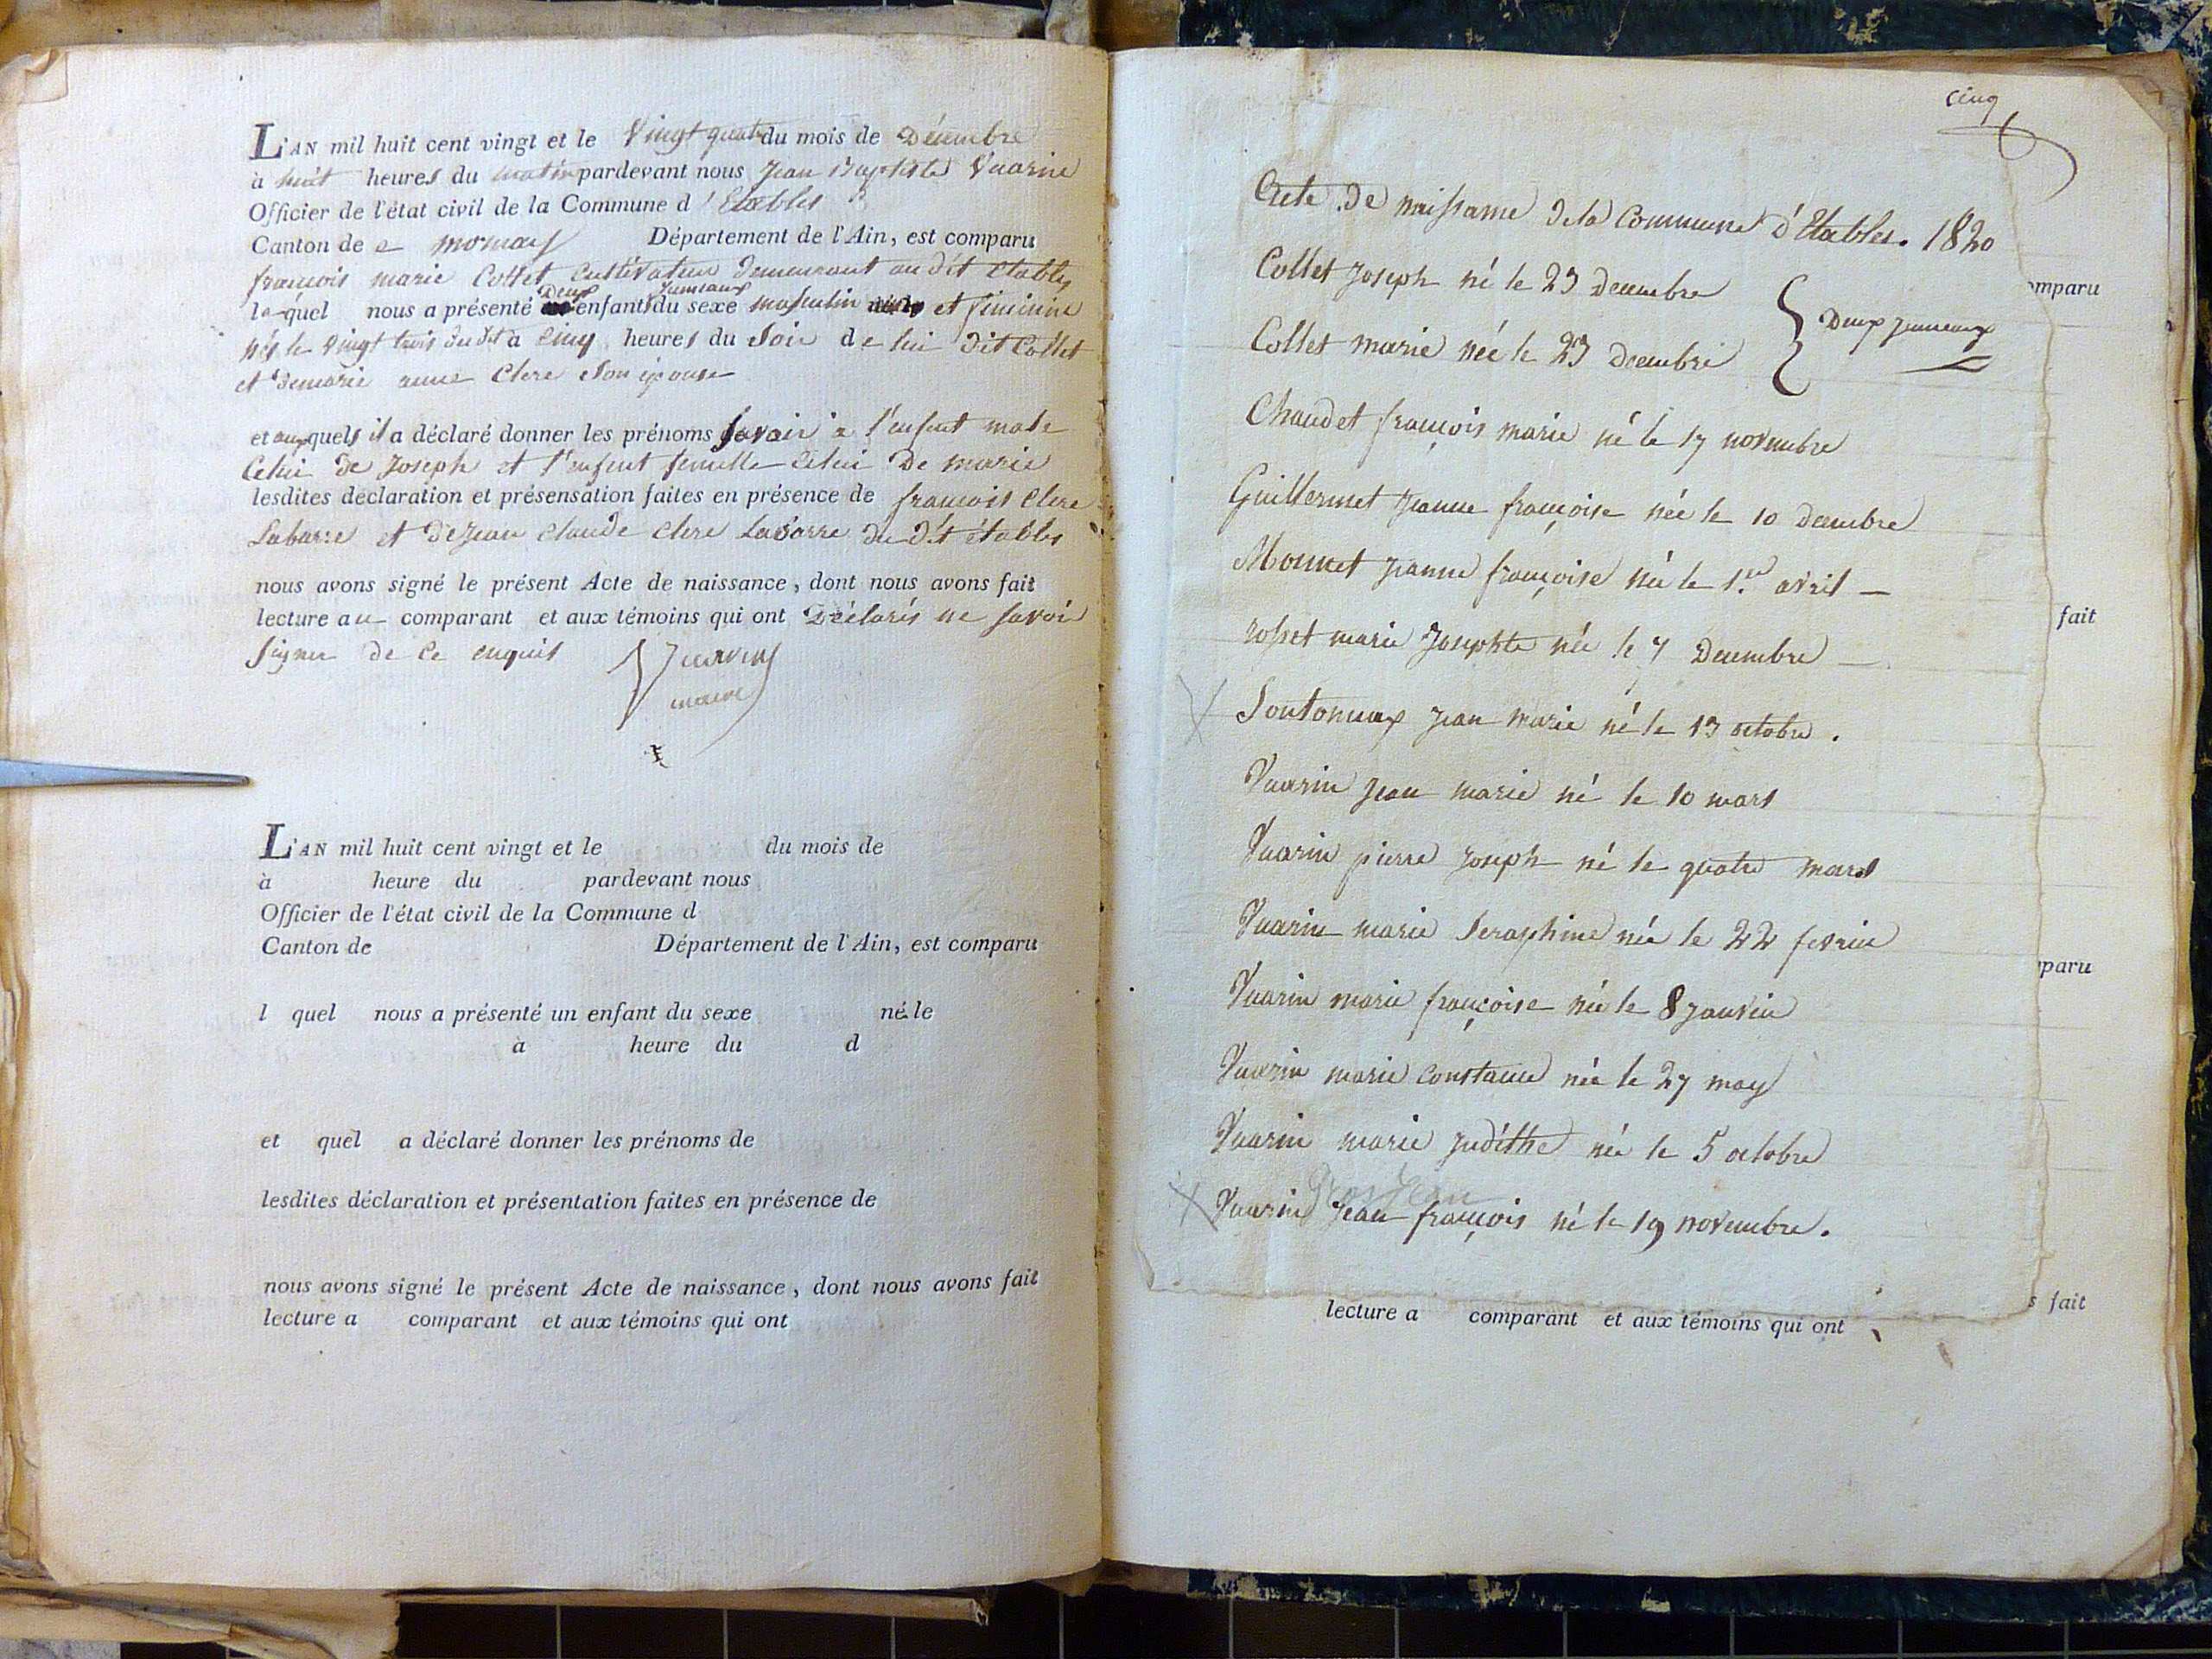 L'AN mil huit cent vingt et le Vingt quatre du mois de Décembre
à huit heures du matin pardevant nous Jean Baptiste Vuarin
Officier de l'état civil de la Commune d'Etables
Canton de Mornay Département de l'Ain, est comparu
françois marie Collet cultivateur demeurant au dit etables
lequel nous a présenté Deux enfants Jumeaux du sexe masculin et feminine
nés le vingt trois du dit à cinq heures du soir de lui dit Collet
et de marie anne Clere son épouse
et auxquels il a déclaré donner les prénoms savoir a l'enfent male
Celui de Joseph et l'enfent femelle Celui De marie
lesdites déclaration et présensation faites en présence de françois Clere
Labarre et de Jean Claude Clere Labarre du dit étables
nous avons signé le présent Acte de naissance, dont nous avons fait
lecture au comparant et aux témoins qui ont Déclarés ne savoir
signer de ce enquis
Vuarin
maire
L'AN mil huit cent vingt et le du mois de
à heure du pardevant nous
Officier de l'état civil de la Commune d
Canton de Département de l'Ain, est comparu
l quel nous a présenté un enfant du sexe né le
à heure du d
et quel a déclaré donner les prénoms de
lesdites déclaration et présentation faites en présence de
nous avons signé le présent Acte de naissance, dont nous avons fait
lecture a comparant et aux témoins qui ont
cinq
Acte de naissance de la Commune d'Etables. 1820
Collet Joseph né le 23 Decembre
Deux jumeaux
Collet marie née le 23 Decembre
Chaudet françois marie né le 17 novembre
Guillermet Jeanne françoise née le 10 decembre
Monnet Jeanne françoise née le 1.er avril
rosset marie Josephte née le 7 Decembre
Soutonnax Jean marie né le 13 octobre.
Vuarin Jean marie né le 10 mars
Vuarin pierre Joseph né le quatre mars
Vuarin marie Seraphine née le 22 fevrier
Vuarin marie françoise née le 8 janvier
Vuarin marie Constance née le 27 may
Vuarin marie Judithe née le 5 octobre
Grosjean
Vuarin Jean françois né le 19 novembre.
mparu
fait
paru
s fait
lecture a comparant et aux témoins qui ont